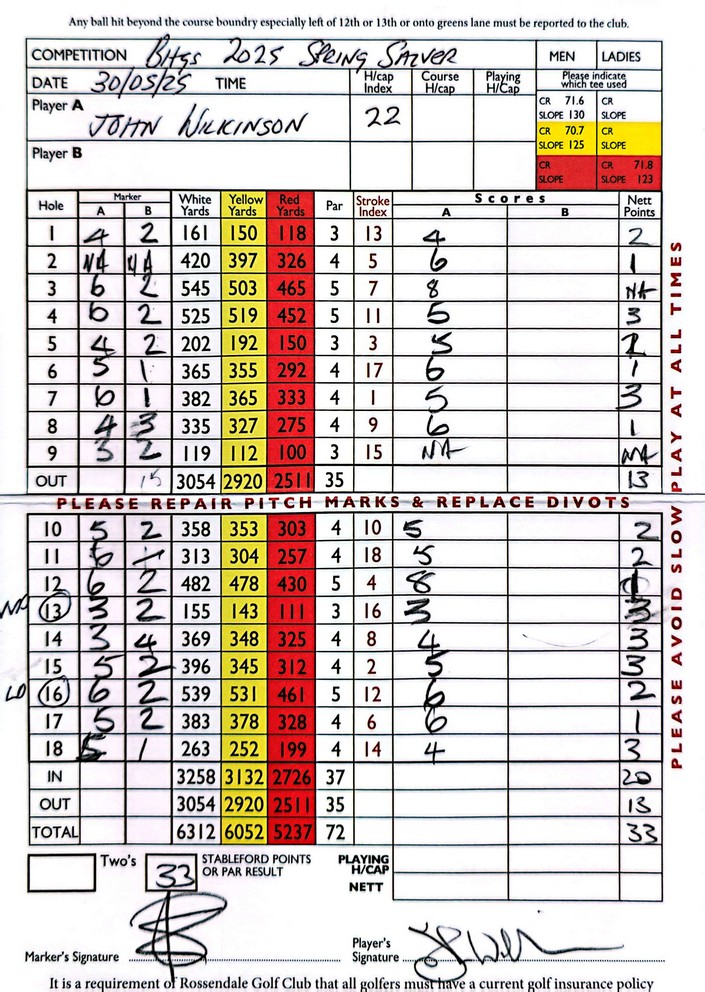 Any ball hit beyond the course boundry especially left of 12th or 13th or onto greens lane must be reported to the club.
COMPETITION BHGS 2025 SPRING SALVER MEN LADIES
DATE 30/05/25 TIME H/cap Index Course H/cap Playing H/Cap Please indicate which tee used
Player A JOHN WILKINSON 22
CR 71.6 SLOPE 130 CR SLOPE
CR 70.7 SLOPE 125 CR SLOPE
Player B
CR SLOPE CR 71.8 SLOPE 123
Hole Marker A B White Yards Yellow Yards Red Yards Par Stroke Index Scores A B Nett Points
1 4 2 161 150 118 3 13 4 2
2 NA NA 420 397 326 4 5 6 1
3 6 2 545 503 465 5 7 8 NA
4 6 2 525 519 452 5 11 5 3
5 4 2 202 192 150 3 3 5
6 5 1 365 355 292 4 17 6 1
7 6 1 382 365 333 4 1 5 3
8 4 3 335 327 275 4 9 6 1
9 3 2 119 112 100 3 15 NA NA
OUT 15 3054 2920 2511 35 13
PLEASE REPAIR PITCH MARKS & REPLACE DIVOTS
10 5 2 358 353 303 4 10 5 2
11 6 313 304 257 4 18 5 2
12 6 2 482 478 430 5 4 8 1
13 3 2 155 143 111 3 16 3 3
14 3 4 369 348 325 4 8 4 3
15 5 2 396 345 312 4 2 5 3
16 6 2 539 531 461 5 12 6 2
17 5 2 383 378 328 4 6 6 1
18 5 1 263 252 199 4 14 4 3
IN 3258 3132 2726 37 20
OUT 3054 2920 2511 35 13
TOTAL 6312 6052 5237 72 33
PLEASE AVOID SLOW PLAY AT ALL TIMES
Two's 33 STABLEFORD POINTS OR PAR RESULT PLAYING H/CAP
NETT
Marker's Signature Player's Signature
It is a requirement of Rossendale Golf Club that all golfers must have a current golf insurance policy